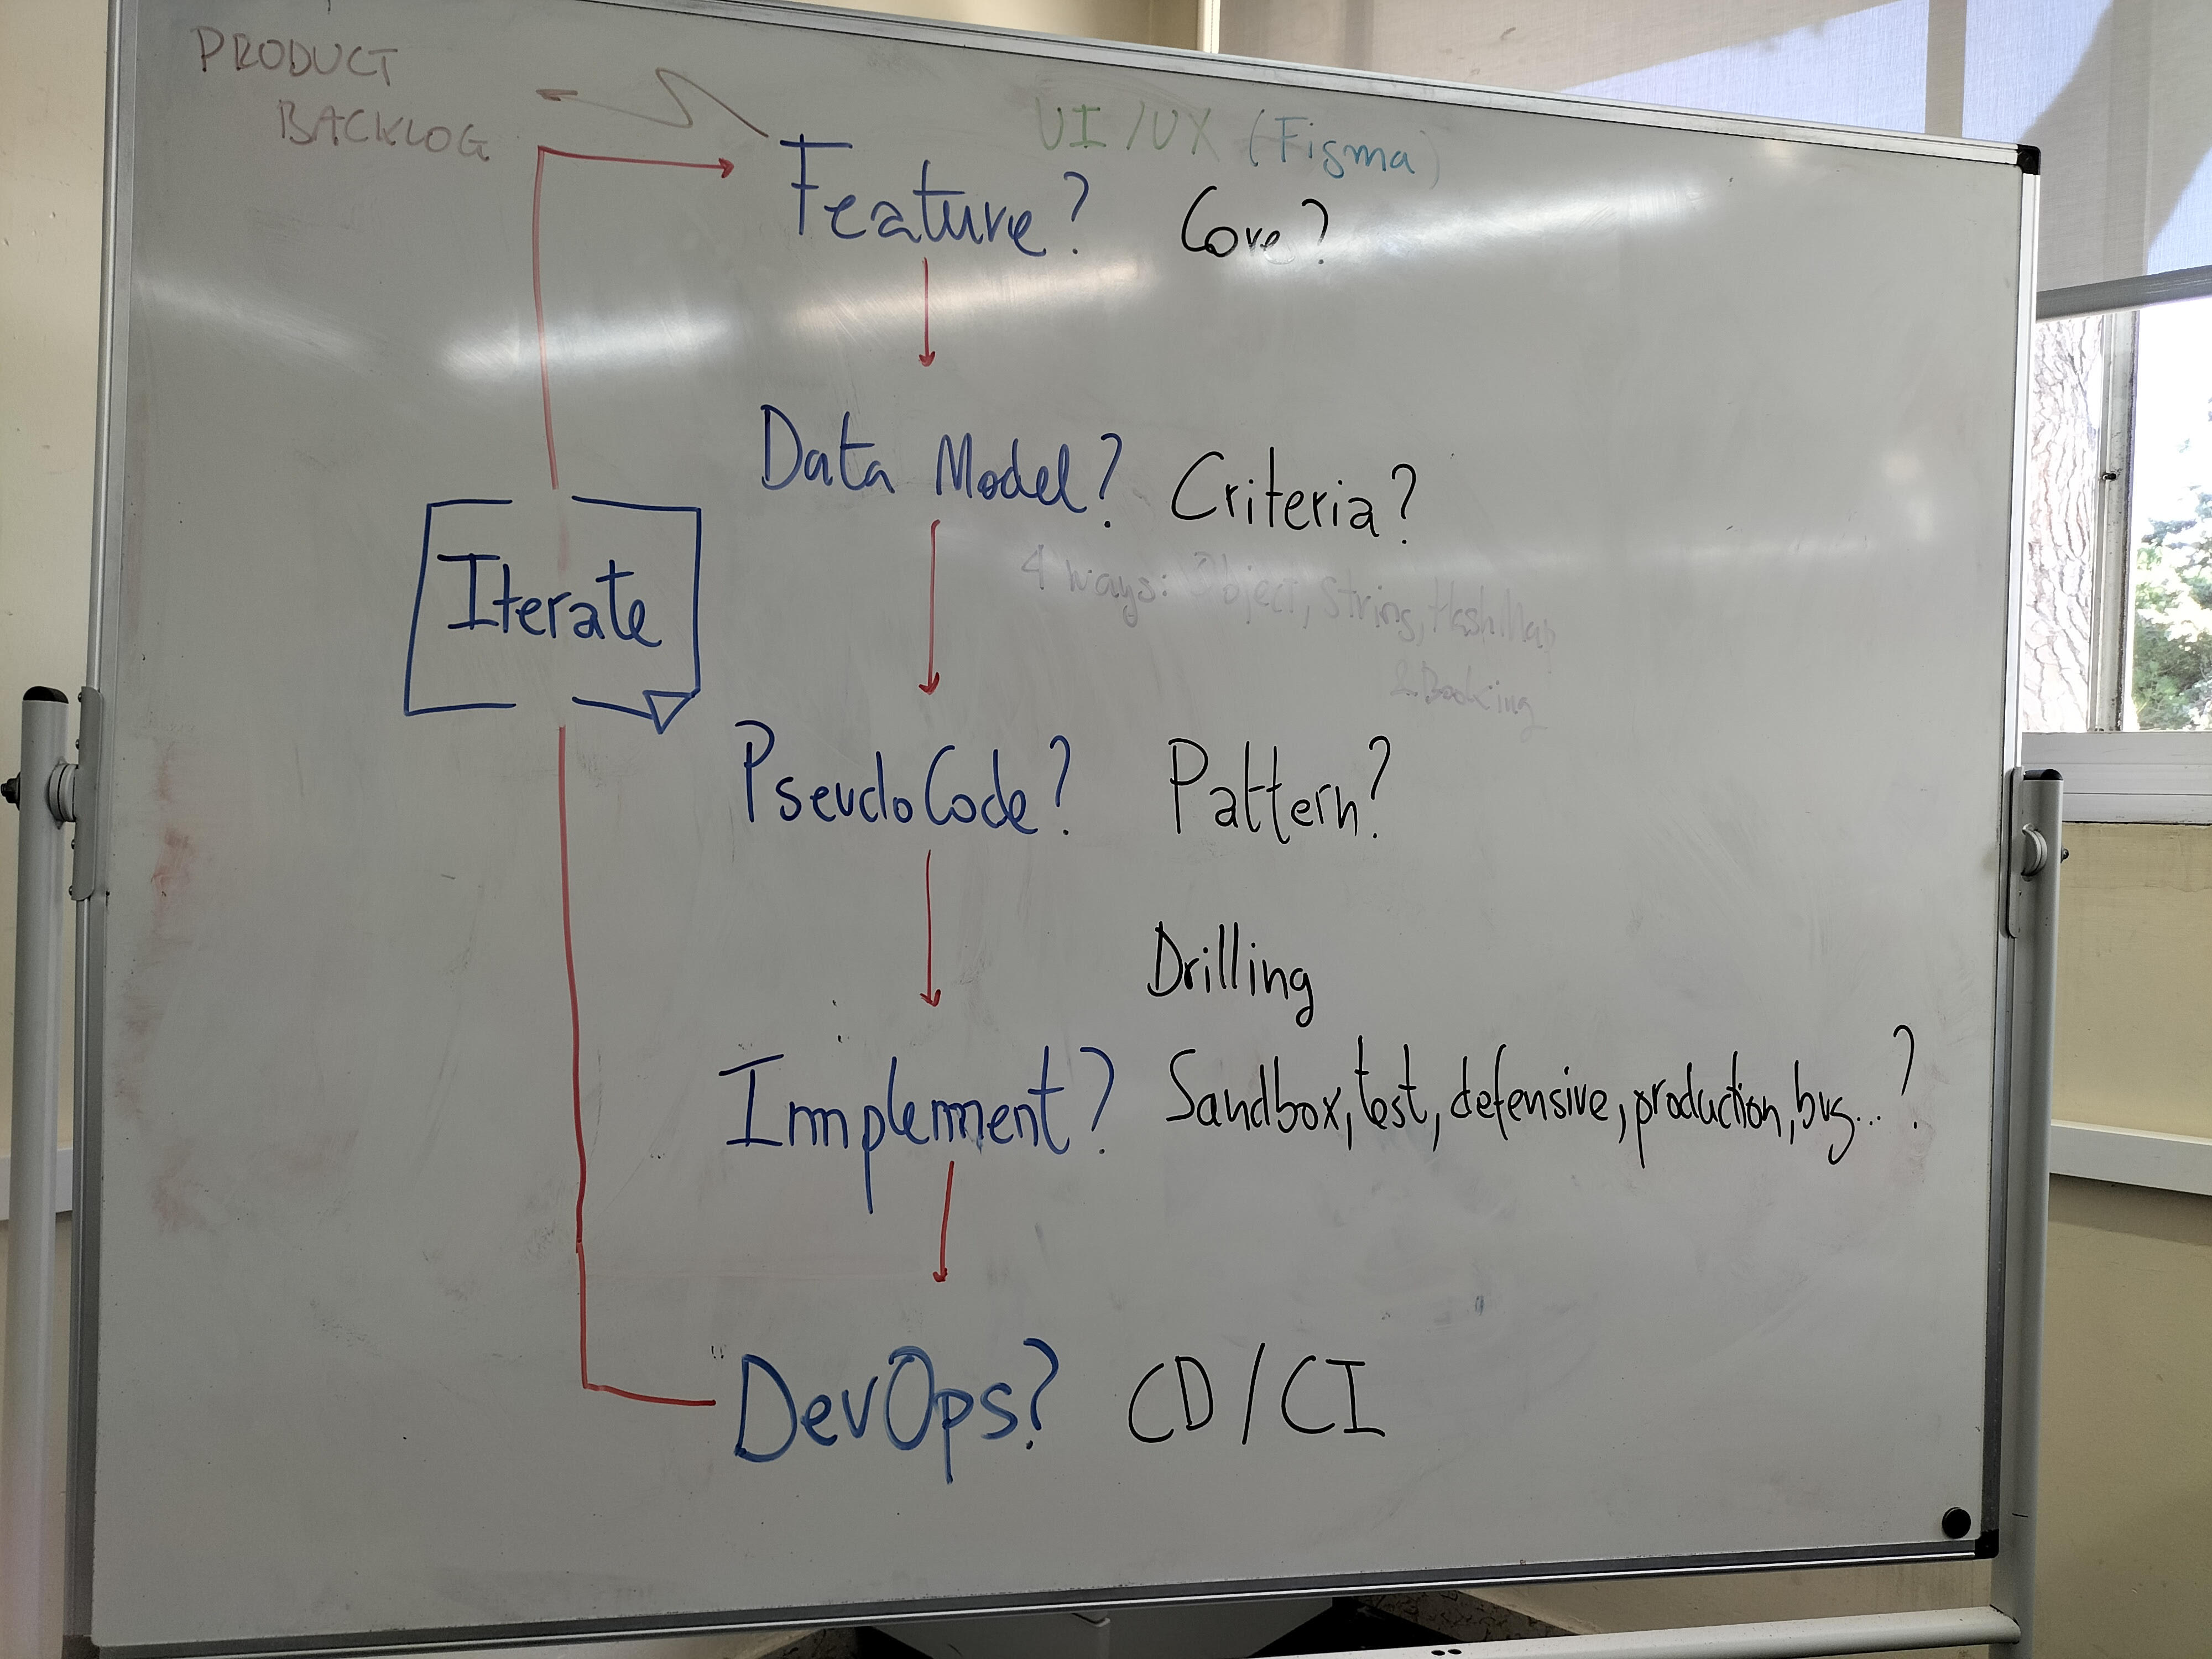 PRODUCT
BACKLOG
UI/UX (Figma)
Feature? Core?
Data Model? Criteria?
4 ways: Object, String, HashMap
& Booking
Iterate
PseudoCode? Pattern?
Drilling
Implement? Sandbox, test, defensive, production, bug...?
DevOps? CD/CI